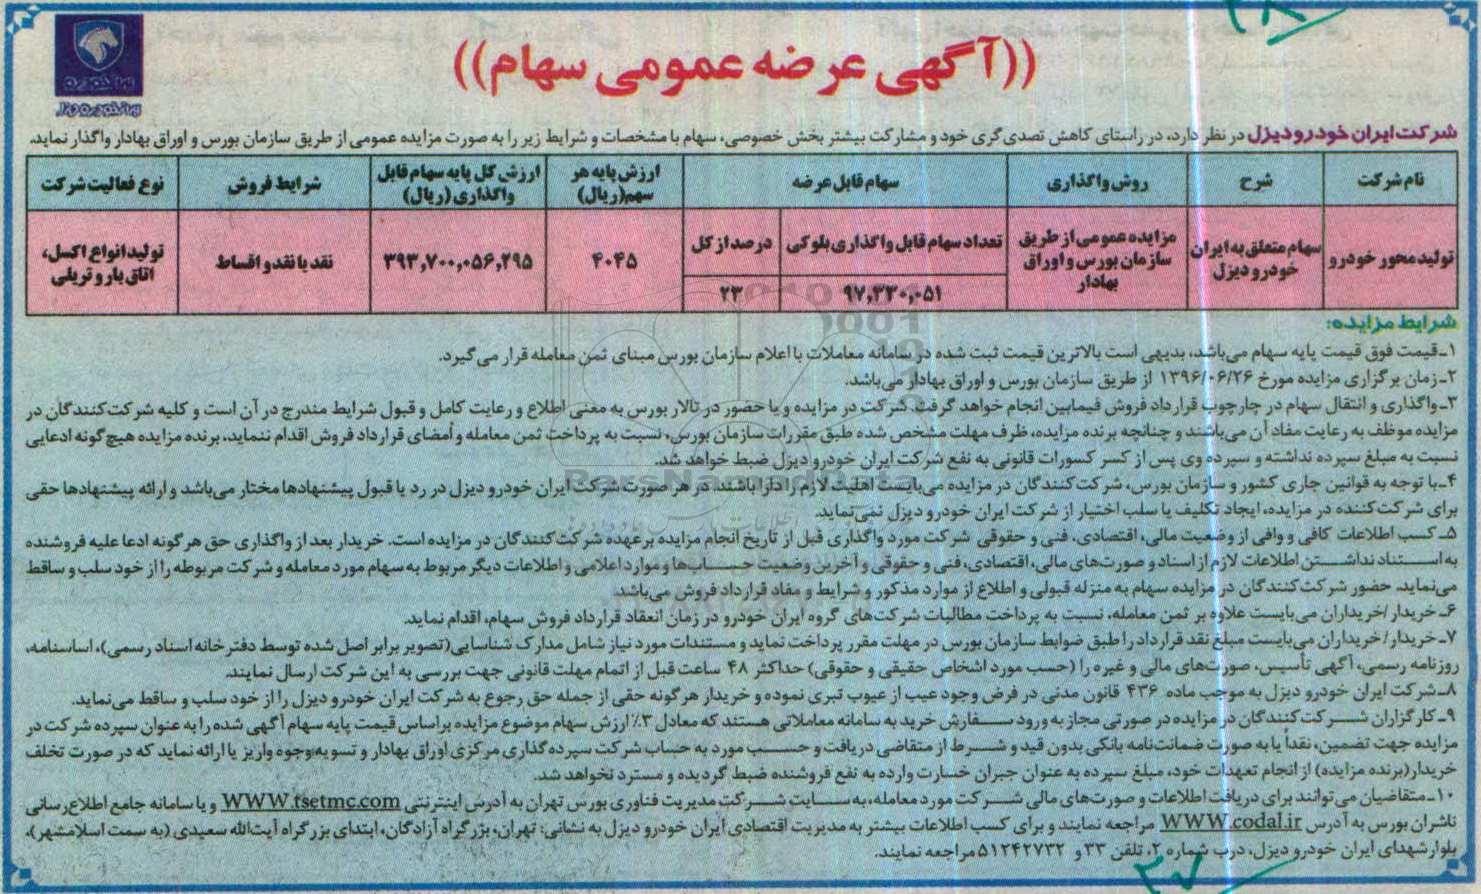 ایران خودرو
ایران خودرو دیزل
((آگهی عرضه عمومی سهام))
شرکت ایران خودرو دیزل در نظر دارد، در راستای کاهش تصدی گری خود و مشارکت بیشتر بخش خصوصی، سهام با مشخصات و شرایط زیر را به صورت مزایده عمومی از طریق سازمان بورس و اوراق بهادار واگذار نماید.
نام شرکت شرح روش واگذاری سهام قابل عرضه ارزش پایه هر سهم(ریال) ارزش کل پایه سهام قابل واگذاری (ریال) شرایط فروش نوع فعالیت شرکت
تولید محور خودرو سهام متعلق به ایران خودرو دیزل مزایده عمومی از طریق سازمان بورس و اوراق بهادار تعداد سهام قابل واگذاری بلوکی درصد از کل ۴۰۴۵ ۳۹۳,۷۰۰,۰۵۶,۲۹۵ نقد یا نقد و اقساط تولید انواع اکسل، اتاق بار و تریلی
۹۷,۳۳۰,۰۵۱ ۲۳
شرایط مزایده:
۱ـ قیمت فوق قیمت پایه سهام می‌باشد، بدیهی است بالاترین قیمت ثبت شده در سامانه معاملات با اعلام سازمان بورس مبنای ثمن معامله قرار می گیرد.
۲ـ زمان برگزاری مزایده مورخ ۱۳۹۶/۰۶/۲۶ از طریق سازمان بورس و اوراق بهادار می‌باشد.
۳ـ واگذاری و انتقال سهام در چارچوب قرارداد فروش فیمابین انجام خواهد گرفت. شرکت در مزایده و یا حضور در تالار بورس به معنی اطلاع و رعایت کامل و قبول شرایط مندرج در آن است و کلیه شرکت کنندگان در
مزایده موظف به رعایت مفاد آن می‌باشند و چنانچه برنده مزایده، ظرف مهلت مشخص شده طبق مقررات سازمان بورس، نسبت به پرداخت ثمن معامله و امضای قرارداد فروش اقدام ننماید، برنده مزایده هیچ گونه ادعایی
نسبت به مبلغ سپرده نداشته و سپرده وی پس از کسر کسورات قانونی به نفع شرکت ایران خودرو دیزل ضبط خواهد شد.
۴ـ با توجه به قوانین جاری کشور و سازمان بورس، شرکت کنندگان در مزایده می‌بایست اهلیت لازم را دارا باشند. در هر صورت شرکت ایران خودرو دیزل در رد یا قبول پیشنهادها مختار می‌باشد و ارائه پیشنهادها حقی
برای شرکت کننده در مزایده، ایجاد تکلیف یا سلب اختیار از شرکت ایران خودرو دیزل نمی‌نماید.
۵ـ کسب اطلاعات کافی و وافی از وضعیت مالی، اقتصادی، فنی و حقوقی شرکت مورد واگذاری قبل از تاریخ انجام مزایده برعهده شرکت کنندگان در مزایده است. خریدار بعد از واگذاری حق هر گونه ادعا علیه فروشنده
به استناد نداشتن اطلاعات لازم از اسناد و صورت‌های مالی، اقتصادی، فنی و حقوقی و آخرین وضعیت حساب‌ها و موارد اعلامی و اطلاعات دیگر مربوط به سهام مورد معامله و شرکت مربوطه را از خود سلب و ساقط
می‌نماید. حضور شرکت کنندگان در مزایده سهام به منزله قبولی و اطلاع از موارد مذکور و شرایط و مفاد قرارداد فروش می‌باشد.
۶ـ خریدار/خریداران می‌بایست علاوه بر ثمن معامله، نسبت به پرداخت مطالبات شرکت‌های گروه ایران خودرو در زمان انعقاد قرارداد فروش سهام، اقدام نماید.
۷ـ خریدار/خریداران می‌بایست مبلغ نقد قرارداد را طبق ضوابط سازمان بورس در مهلت مقرر پرداخت نماید و مستندات مورد نیاز شامل مدارک شناسایی(تصویر برابر اصل شده توسط دفترخانه اسناد رسمی)، اساسنامه،
روزنامه رسمی، آگهی تأسیس، صورت‌های مالی و غیره را (حسب مورد اشخاص حقیقی و حقوقی) حداکثر ۴۸ ساعت قبل از اتمام مهلت قانونی جهت بررسی به این شرکت ارسال نمایند.
۸ـ شرکت ایران خودرو دیزل به موجب ماده ۴۳۶ قانون مدنی در فرض وجود عیب از عیوب تبری نموده و خریدار هر گونه حقی از جمله حق رجوع به شرکت ایران خودرو دیزل را از خود سلب و ساقط می‌نماید.
۹ـ کارگزاران شرکت کنندگان در مزایده در صورتی مجاز به ورود سفارش خرید به سامانه معاملاتی هستند که معادل ۳٪ ارزش سهام موضوع مزایده براساس قیمت پایه سهام آگهی شده را به عنوان سپرده شرکت در
مزایده جهت تضمین، نقداً یا به صورت ضمانت‌نامه بانکی بدون قید و شرط از متقاضی دریافت و حسب مورد به حساب شرکت سپرده گذاری مرکزی اوراق بهادار و تسویه وجوه واریز یا ارائه نماید که در صورت تخلف
خریدار(برنده مزایده) از انجام تعهدات خود، مبلغ سپرده به عنوان جبران خسارت وارده به نفع فروشنده ضبط گردیده و مسترد نخواهد شد.
۱۰ـ متقاضیان می‌توانند برای دریافت اطلاعات و صورت‌های مالی شرکت مورد معامله، به سایت شرکت مدیریت فناوری بورس تهران به آدرس اینترنتی WWW.tsetmc.com و یا سامانه جامع اطلاع‌رسانی
ناشران بورس به آدرس WWW.codal.ir مراجعه نمایند و برای کسب اطلاعات بیشتر به مدیریت اقتصادی ایران خودرو دیزل به نشانی: تهران، بزرگراه آزادگان، ابتدای بزرگراه آیت‌الله سعیدی (به سمت اسلامشهر)،
بلوار شهدای ایران خودرو دیزل، درب شماره ۲، تلفن ۳۳ و ۵۱۲۴۲۷۳۲ مراجعه نمایند.